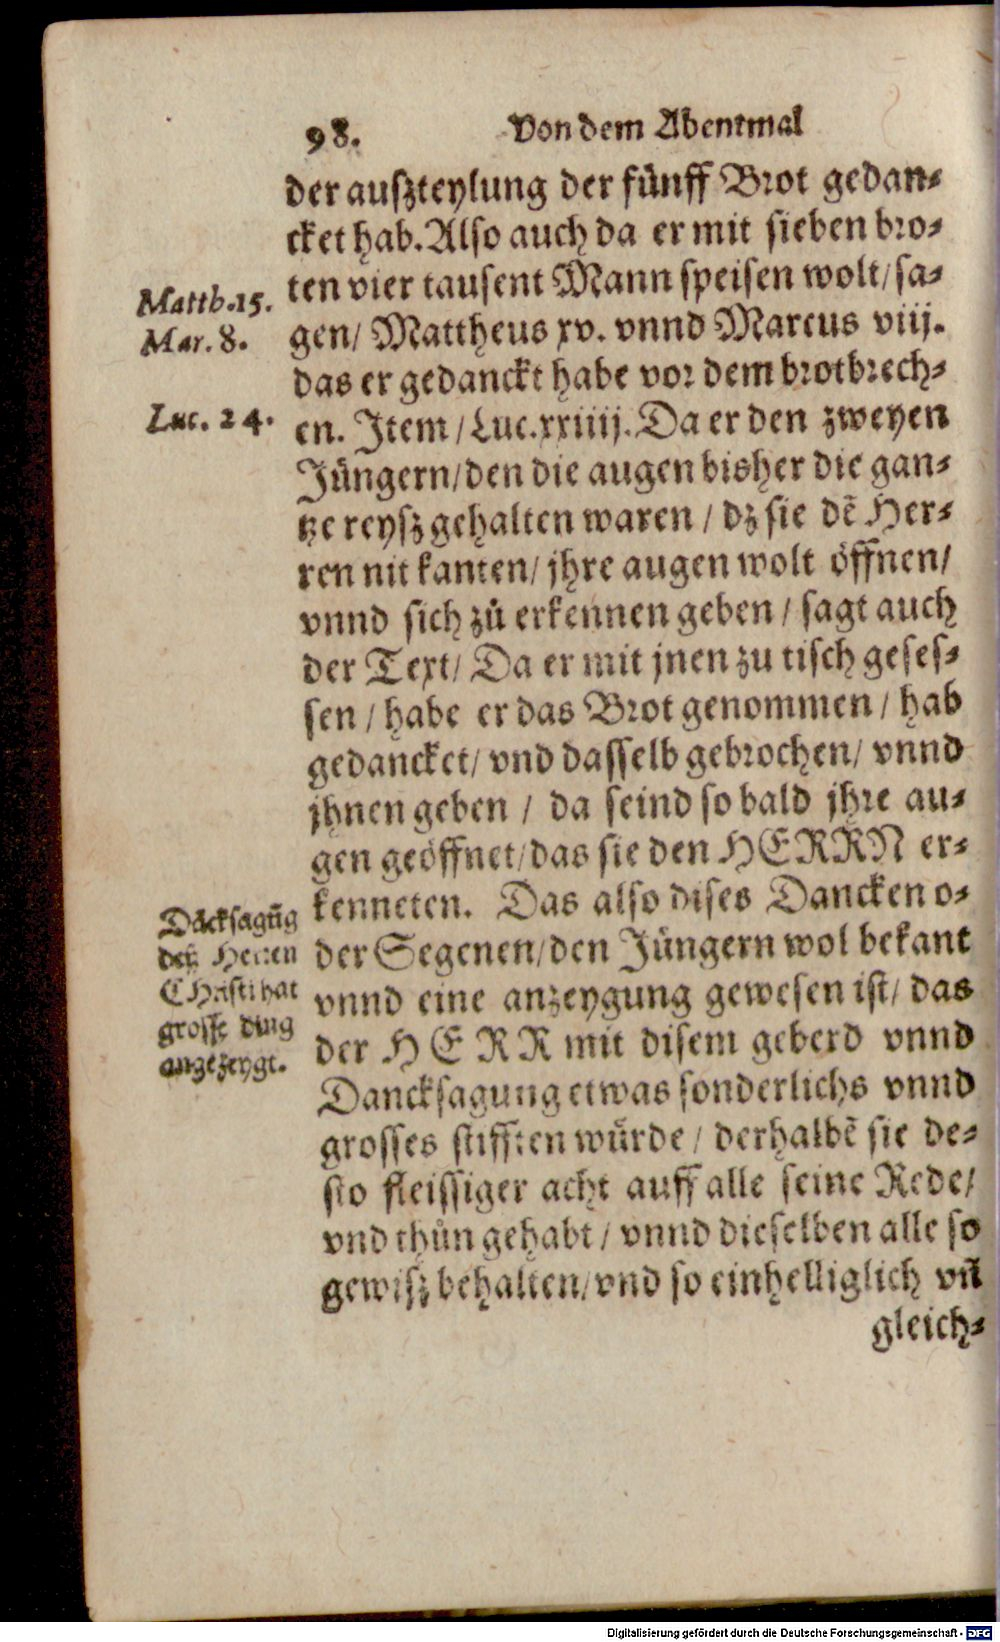 98. Von dem Abentmal
der auszteylung der fünff Brot gedan⸗
cket hab. Also auch da er mit sieben bro⸗
ten vier tausent Mann speisen wolt/ sa⸗
Matth. 15.
gen/ Mattheus xv. vnnd Marcus viij.
Mar. 8.
das er gedanckt habe vor dem brotbrech⸗
en. Item / Luc. xxiiij. Da er den zweyen
Luc. 24.
Jüngern/ den die augen bisher die gan⸗
tze reysz gehalten waren / dz sie dē Her⸗
ren nit kanten/ jhre augen wolt öffnen/
vnnd sich zů erkennen geben / sagt auch
der Text/ Da er mit jnen zu tisch geses⸗
sen / habe er das Brot genommen / hab
gedancket/ vnd dasselb gebrochen/ vnnd
jhnen geben / da seind so bald jhre au⸗
gen geöffnet/ das sie den HERRN er⸗
kenneten. Das also dises Dancken o⸗
der Segenen/ den Jüngern wol bekant
vnnd eine anzeygung gewesen ist/ das
der HERR mit disem geberd vnnd
Dancksagung etwas sonderlichs vnnd
Dācksagūg
desz Herren
CHristi hat
grosse ding
angezeygt.
grosses stifften würde / derhalbē sie de⸗
sto fleissiger acht auff alle seine Rede/
vnd thůn gehabt / vnnd dieselben alle so
gewisz behalten/ vnd so einhelliglich vñ
gleich⸗
Digitalisierung gefördert durch die Deutsche Forschungsgemeinschaft - DFG